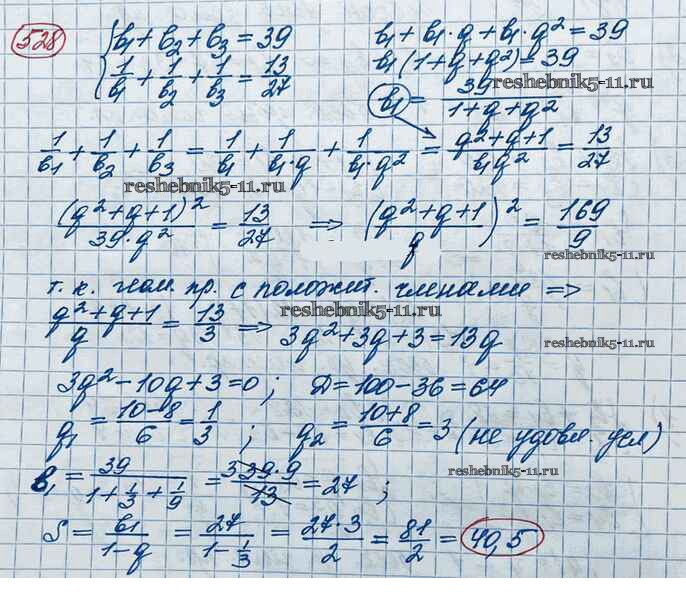 528
{ b₁ + b₂ + b₃ = 39
1/b₁ + 1/b₂ + 1/b₃ = 13/27
b₁ + b₁·q + b₁·q² = 39
b₁(1+q+q²) = 39
b₁ = 39/(1+q+q²)
reshebnik5-11.ru
1/b₁ + 1/b₂ + 1/b₃ = 1/b₁ + 1/(b₁·q) + 1/(b₁·q²) = (q²+q+1)/(b₁q²) = 13/27
reshebnik5-11.ru
(q²+q+1)²/(39·q²) = 13/27 ⇒ ((q²+q+1)/q)² = 169/9
reshebnik5-11.ru
т.к. геом. пр. с положит. членами ⇒
reshebnik5-11.ru
(q²+q+1)/q = 13/3 ⇒ 3q²+3q+3=13q
reshebnik5-11.ru
3q²-10q+3=0; Д=100-36=64
q₁ = (10-8)/6 = 1/3; q₂ = (10+8)/6 = 3 (не удовл. усл)
reshebnik5-11.ru
b₁ = 39/(1+1/3+1/9) = 39·9/13 = 27;
S = b₁/(1-q) = 27/(1-1/3) = 27·3/2 = 81/2 = 40,5